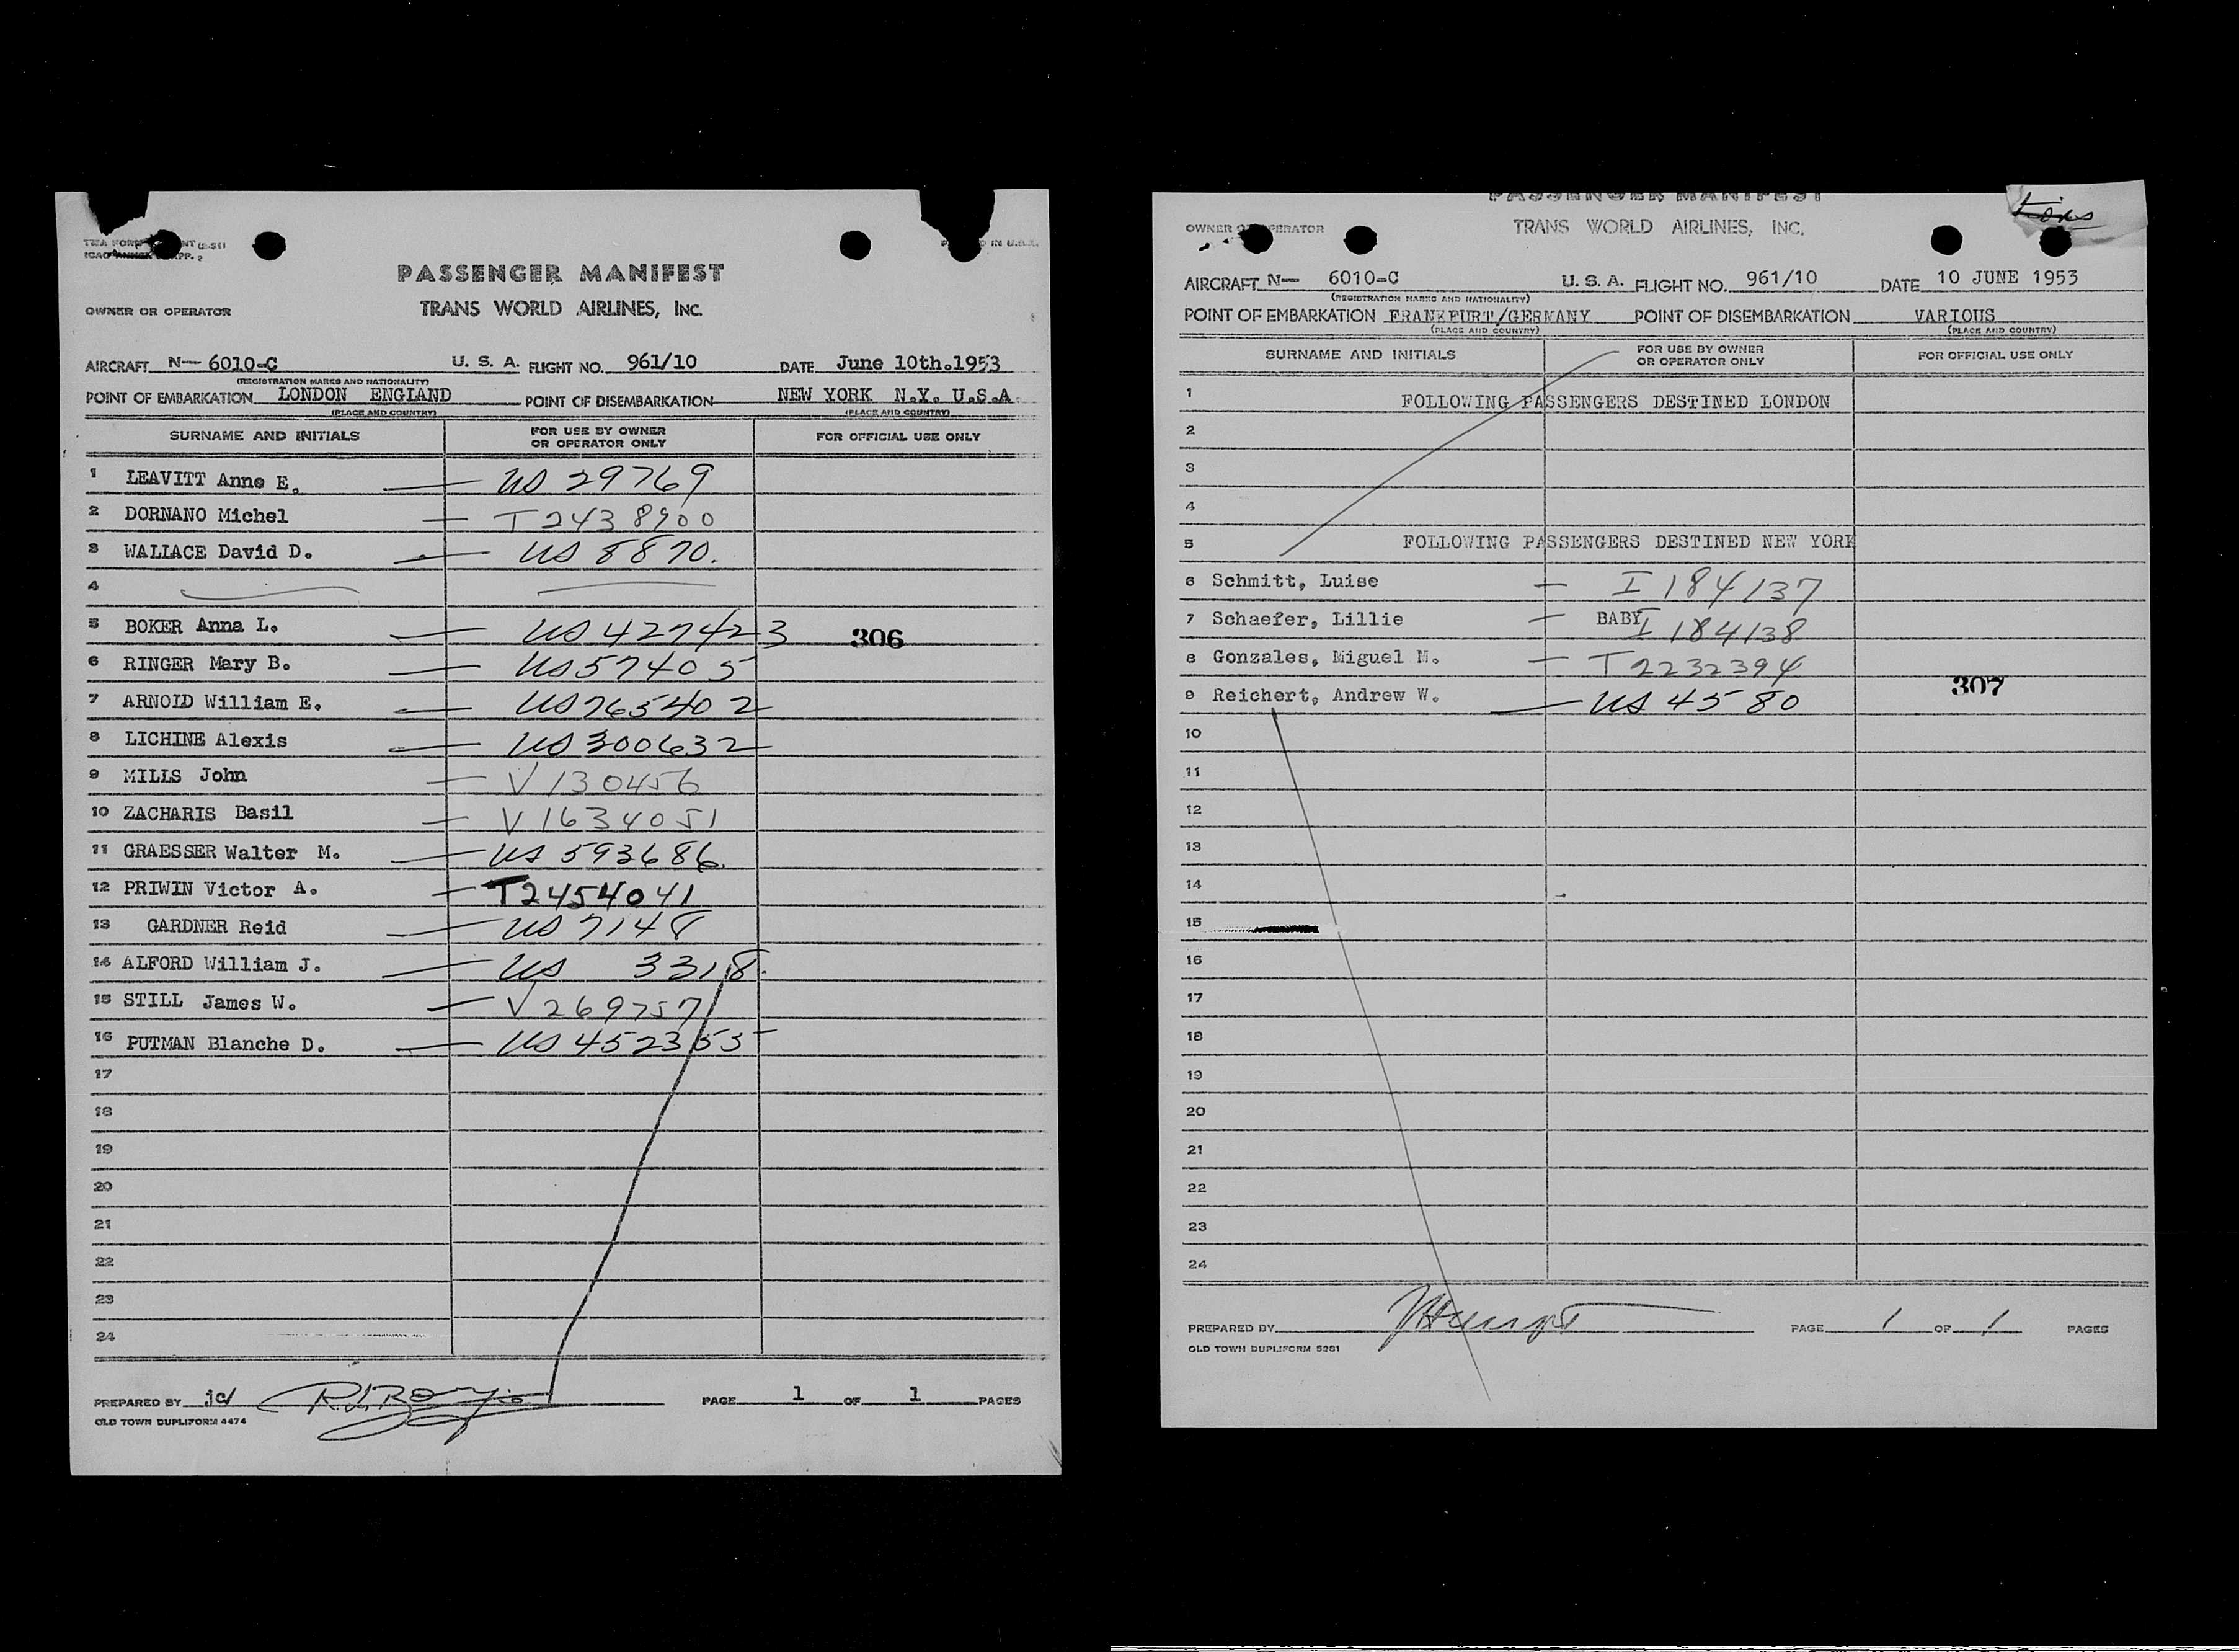 PASSENGER MANIFEST
OWNER OR OPERATOR
TRANS WORLD AIRLINES, Inc.
AIRCRAFT N— 6010-C U. S. A. FLIGHT NO. 961/10 DATE June 10th.1953
(REGISTRATION MARKS AND NATIONALITY)
POINT OF EMBARKATION LONDON ENGLAND POINT OF DISEMBARKATION NEW YORK N.Y. U.S.A.
(PLACE AND COUNTRY) (PLACE AND COUNTRY)
SURNAME AND INITIALS FOR USE BY OWNER OR OPERATOR ONLY FOR OFFICIAL USE ONLY
1 LEAVITT Anne E. — US 29769
2 DORNANO Michel — T 2438900
3 WALLACE David D. — US 8870.
4
5 BOKER Anna L. — US 427423 306
6 RINGER Mary B. — US 57405
7 ARNOLD William E. — US 765402
8 LICHINE Alexis — US 300632
9 MILLS John — V 130456
10 ZACHARIS Basil — V 1634051
11 GRAESSER Walter M. — US 593686
12 PRIWIN Victor A. — T2454041
13 GARDNER Reid — US 7148
14 ALFORD William J. — US 3318.
15 STILL James W. — V 269757
16 PUTMAN Blanche D. — US 452355
17
18
19
20
21
22
23
24
PREPARED BY jc/ PAGE 1 OF 1 PAGES
OLD TOWN DUPLIFORM 4474
PASSENGER MANIFEST
OWNER OR OPERATOR TRANS WORLD AIRLINES, INC.
AIRCRAFT N— 6010-C U. S. A. FLIGHT NO. 961/10 DATE 10 JUNE 1953
(REGISTRATION MARKS AND NATIONALITY)
POINT OF EMBARKATION FRANKFURT/GERMANY POINT OF DISEMBARKATION VARIOUS
(PLACE AND COUNTRY) (PLACE AND COUNTRY)
SURNAME AND INITIALS FOR USE BY OWNER OR OPERATOR ONLY FOR OFFICIAL USE ONLY
1 FOLLOWING PASSENGERS DESTINED LONDON
2
3
4
5 FOLLOWING PASSENGERS DESTINED NEW YORK
6 Schmitt, Luise — I 184137
7 Schaefer, Lillie — BABY I 184138
8 Gonzales, Miguel M. — T 2232394
9 Reichert, Andrew W. — US 4580 307
10
11
12
13
14
15
16
17
18
19
20
21
22
23
24
PREPARED BY PAGE 1 OF 1 PAGES
OLD TOWN DUPLIFORM 5281